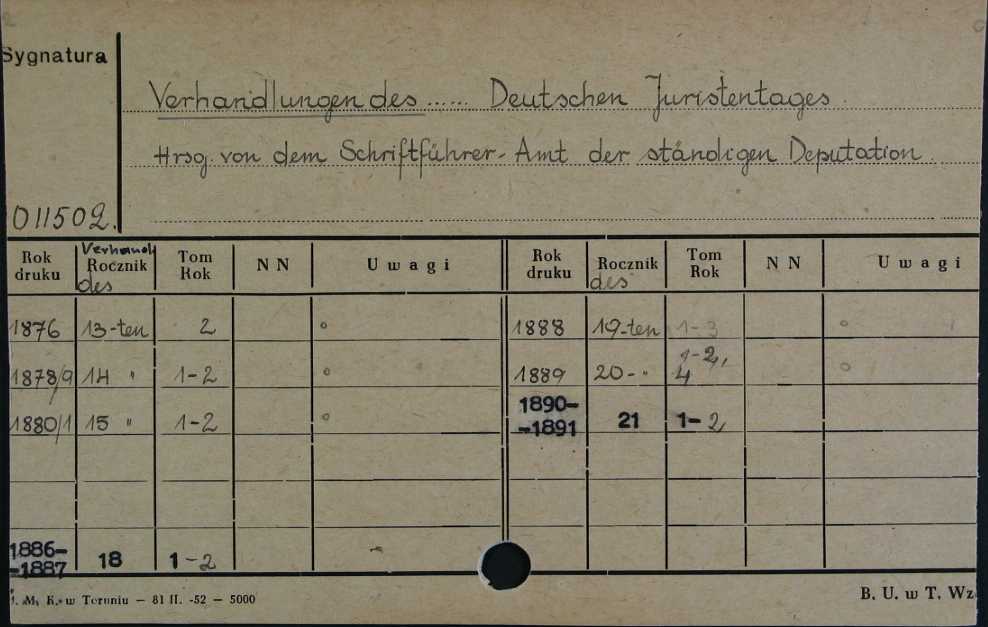 Sygnatura
Verhandlungen des ...... Deutschen Juristentages.
Hrsg. von dem Schriftführer-Amt der ständigen Deputation.
011502.
Rok druku Verhandl. Rocznik des Tom Rok N N Uwagi Rok druku Rocznik des Tom Rok N N Uwagi
1876 13-ten 2 ° 1888 19-ten 1-3 °
1878/9 14 " 1-2 ° 1889 20-" 1-2, 4 °
1880/1 15 " 1-2 ° 1890--1891 21 1-2
1886--1887 18 1-2
M. K. w Toruniu — 81 II. -52 — 5000
B. U. w T. Wz